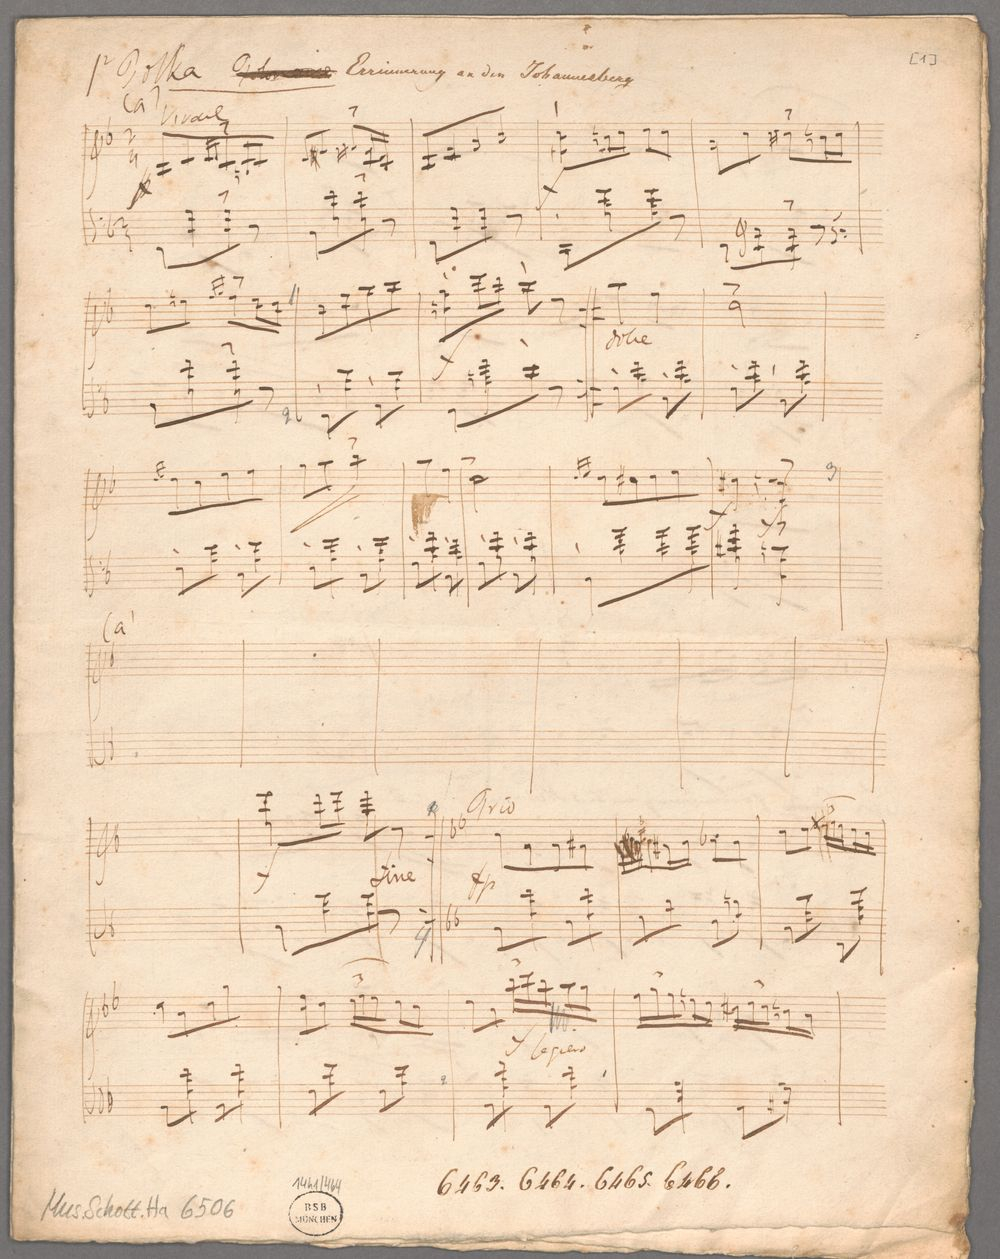 [1]
Polka Errinnerung an den Johannesberg
(a)
Vivace
f
f
dolce
f f
(a)
Trio
f fine fp
f legiero
6463. 6464. 6465. 6466.
1461/464
Mus.Schott.Ha 6506
BSB
MÜNCHEN